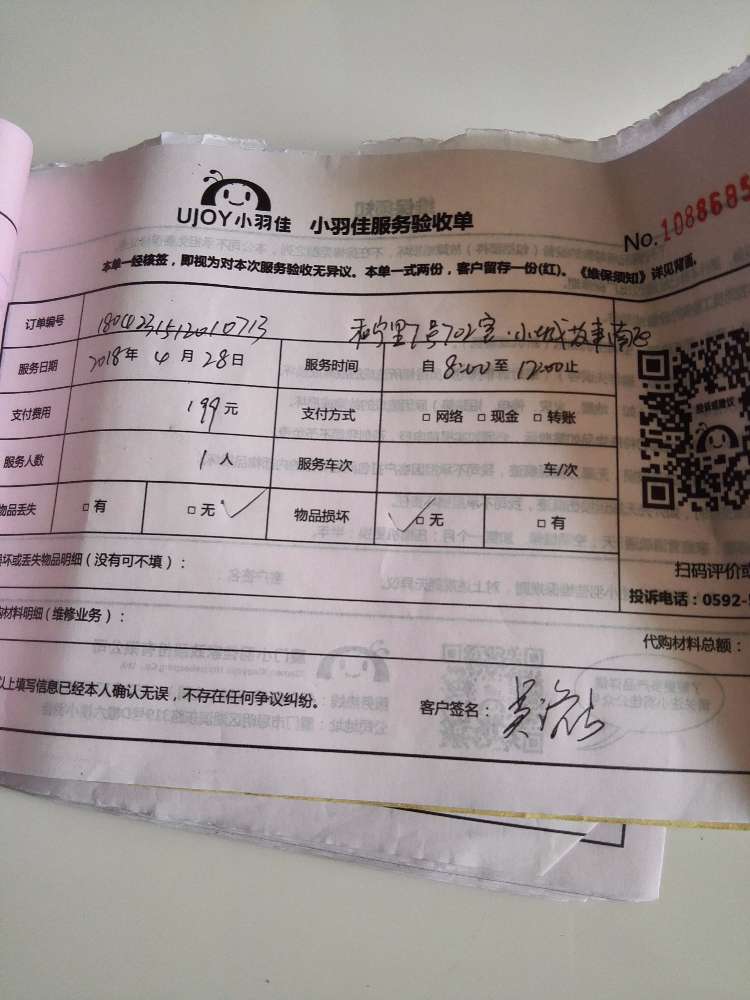 UJOY小羽佳 小羽佳服务验收单
No. 1088685
本单一经核签，即视为对本次服务验收无异议。本单一式两份，客户留存一份(红)。《维保须知》详见背面。
订单编号 1804231512010713 和宁里7号702室·小城故事南
服务日期 2018年 4 月 28日 服务时间 自 8:00 至 12:00止
支付费用 199元 支付方式 □网络 □现金 □转账
服务人数 1人 服务车次 车/次
物品丢失 □有 □无 ✓ 物品损坏 ✓□无 □有
坏或丢失物品明细（没有可不填）：
扫码评价或
投诉电话：0592-
购材料明细（维修业务）：
代购材料总额：
以上填写信息已经本人确认无误，不存在任何争议纠纷。 客户签名：吴